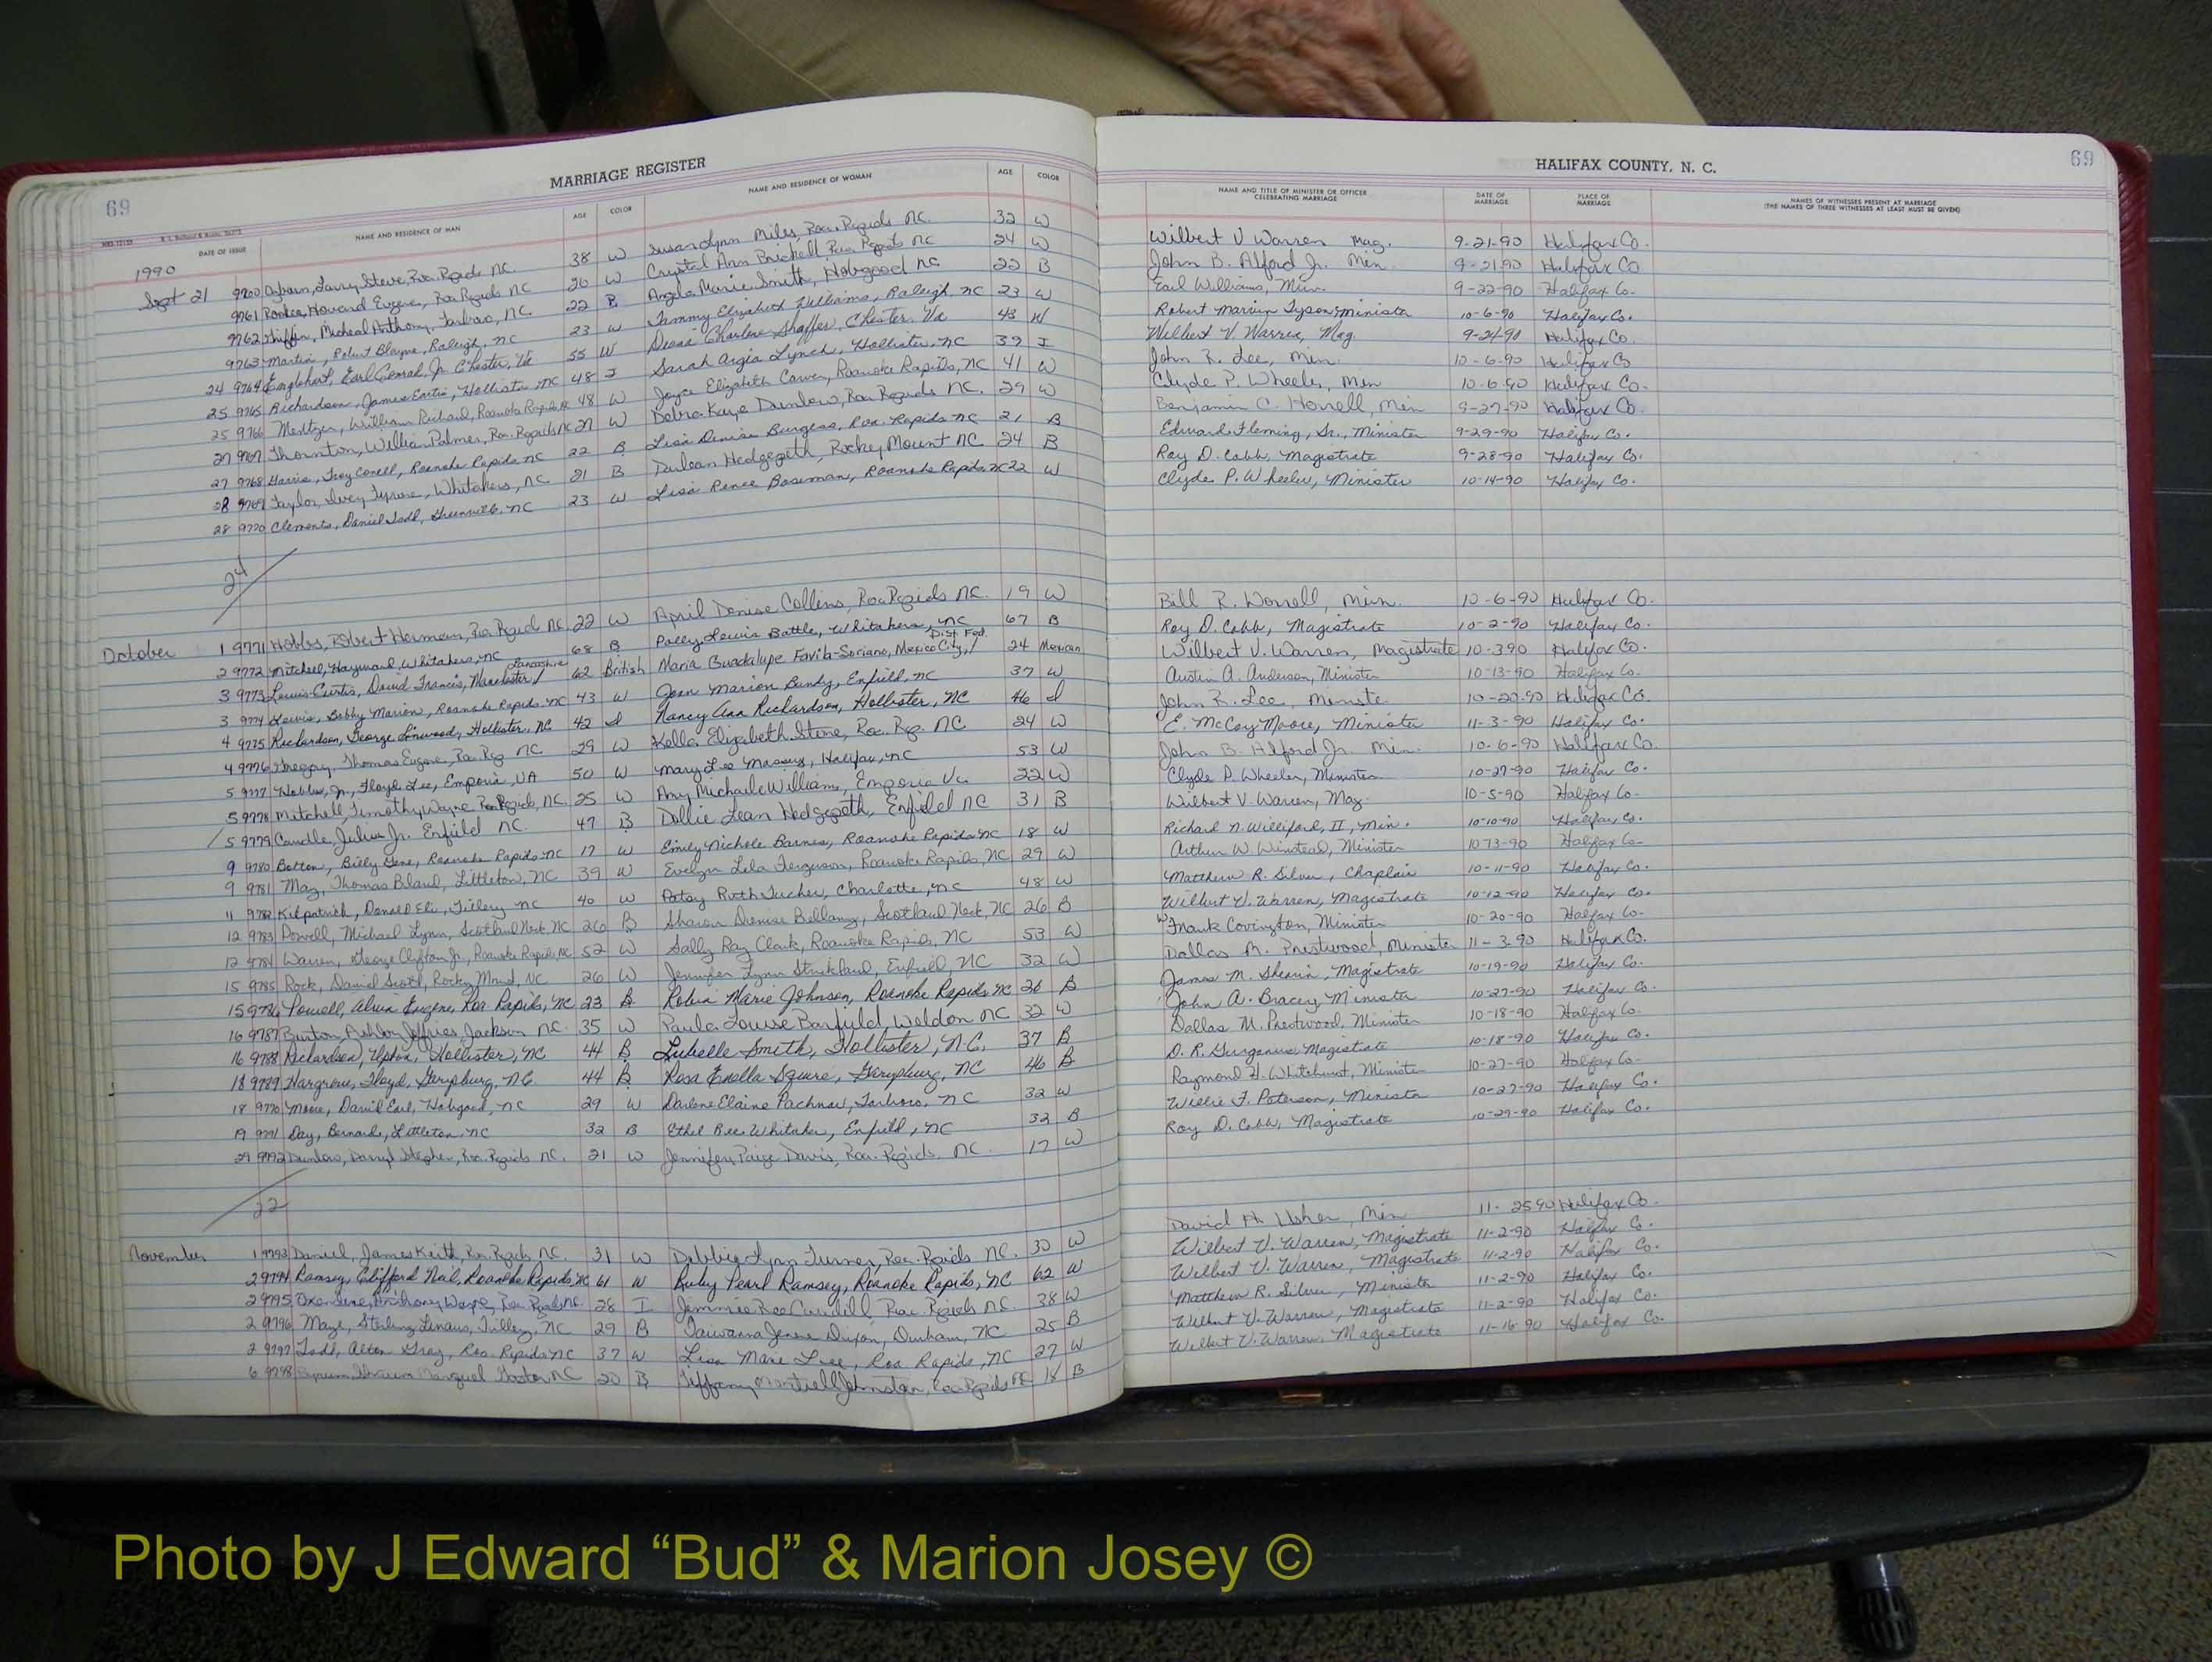 69
MARRIAGE REGISTER
HALIFAX COUNTY, N. C.
69
DATE OF ISSUE NAME AND RESIDENCE OF MAN AGE COLOR NAME AND RESIDENCE OF WOMAN AGE COLOR NAME AND TITLE OF MINISTER OR OFFICER CELEBRATING MARRIAGE DATE OF MARRIAGE PLACE OF MARRIAGE NAMES OF WITNESSES PRESENT AT MARRIAGE (THE NAMES OF THREE WITNESSES AT LEAST MUST BE GIVEN)
1990
Sept 21 9760 Steve, Roa. Rapids NC. 38 W Susan Lynn Miles, Roa. Rapids NC. 32 W Wilbert V Warren Mag. 9-21-90 Halifax Co.
9761 Howard Eugene, Roa Rapids NC W Crystal Ann Brickell Roa Rapids NC 24 W John B. Alford Jr. Min. 9-21-90 Halifax Co
9762 Griffin, Micheal Anthony, Tarboro, NC. 22 B Angela Marie Smith, Hobgood NC 22 B Earl Williams, Min. 9-22-90 Halifax Co.
9763 Martin, Robert Blayne, Raleigh, NC 23 W Tammy Elizabeth Williams, Raleigh, NC 23 W Robert Marvin Tyson Minister 10-6-90 Halifax Co.
24 9764 Englehart, Earl Conrad, Jr. Chester, Va 55 W Diana Charlene Shaffer, Chester, Va 43 W Wilbert V. Warren, Mag. 9-24-90 Halifax Co.
25 9765 Richardson, James Hollister, NC 48 I Sarah Argia Lynch, Hollister, NC 39 I John R. Lee, Min. 10-6-90 Halifax Co
25 9766 William Richard, Roanoke Rapids NC 48 W Joyce Elizabeth Roanoke Rapids, NC 41 W Clyde P. Wheeler, Min 10-6-90 Halifax Co.
27 9767 Thornton, William Palmer, Roa. Rapids NC 27 W Debra Kaye Dunlow, Roa Rapids NC. 29 W Benjamin C. Howell, Min 9-27-90 Halifax Co.
27 9768 Harris, Troy Roanoke Rapids NC 22 B Lisa Denise Burgess, Roa. Rapids NC 21 B Edward Fleming, Sr., Minister 9-29-90 Halifax Co.
28 9769 Taylor, Ivey Tyrone, Whitakers, NC 21 B Hedgepeth, Rocky Mount NC 24 B Roy D. Cobb, Magistrate 9-28-90 Halifax Co.
28 9770 Clements, Daniel Todd, Greenville, NC 23 W Lisa Renee Boseman, Roanoke Rapids, NC 22 W Clyde P. Wheeler, Minister 10-14-90 Halifax Co.
24
October 1 9771 Hobbs, Robert Herman, Roa Rapids NC. 22 W April Denise Collins, Roa Rapids NC. 19 W Bill R. Worrell, Min. 10-6-90 Halifax Co.
2 9772 Mitchell, Hayward, Whitakers, NC 68 B Polly Lewis Battle, Whitakers, NC 67 B Roy D. Cobb, Magistrate 10-2-90 Halifax Co.
3 9773 Lewis-Curtis, David Francis, Manchester, Lancashire 62 British Maria Guadalupe Favila-Soriano, Mexico City, Dist. Fed. 24 Mexican Wilbert V. Warren, Magistrate 10-3-90 Halifax Co.
3 9774 Lewis, Bobby Marion, Roanoke Rapids, NC 43 W Joan Marion Bundy, Enfield, NC 37 W Austin A. Anderson, Minister 10-13-90 Halifax Co.
4 9775 Richardson, George Linwood, Hollister, NC 42 I Nancy Ann Richardson, Hollister, NC 46 I John R. Lee, Minister 10-20-90 Halifax Co.
4 9776 Gregory, Thomas Eugene, Roa. Rap NC 29 W Kella Elizabeth Stone, Roa. Rap. NC 24 W E. McCoy Moore, Minister 11-3-90 Halifax Co.
5 9777 Jr., Floyd Lee, Emporia, VA 50 W Mary Lee Massey, Halifax, NC 53 W John B. Alford Jr. Min. 10-6-90 Halifax Co.
5 9778 Mitchell, Timothy Wayne Roa Rapids, NC. 25 W Amy Michaele Williams, Emporia Va 22 W Clyde P. Wheeler, Minister 10-27-90 Halifax Co.
5 9779 Caudle, Julius Jr. Enfield NC. 47 B Dollie Lean Hedgepeth, Enfield NC 31 B Wilbert V. Warren, Mag. 10-5-90 Halifax Co.
9 9780 Billy Gene, Roanoke Rapids NC 17 W Emily Nichole Barnes, Roanoke Rapids NC 18 W Richard N. Williford, II, Min. 10-10-90 Halifax Co.
9 9781 May, Thomas Bland, Littleton, NC 39 W Evelyn Lela Ferguson, Roanoke Rapids, NC 29 W Arthur W. Winstead, Minister 10 13-90 Halifax Co.
11 9782 Kilpatrick, Donald Eli, Tillery NC 40 W Patsy Ruth Tucker, Charlotte, NC 48 W Matthew R. Silver, Chaplain 10-11-90 Halifax Co.
12 9783 Powell, Michael Lynn, Scotland Neck, NC 26 B Sharon Denise Bellamy, Scotland Neck, NC 26 B Wilbert V. Warren, Magistrate 10-12-90 Halifax Co.
12 9784 Warren, George Clifton Jr, Roanoke Rapids, NC 52 W Sally Ray Clark, Roanoke Rapids, NC 53 W Frank Covington, Minister 10-20-90 Halifax Co.
15 9785 Rock, Daniel Scott, Rocky Mount, NC 26 W Jennifer Lynn Strickland, Enfield, NC 32 W Dallas M. Prestwood, Minister 11-3-90 Halifax Co.
15 9786 Powell, Alvin Eugene, Roa Rapids, NC 23 B Robin Marie Johnson, Roanoke Rapids, NC 26 B James M. Shearin, Magistrate 10-19-90 Halifax Co.
16 9787 Burton, Ashlon Jeffries, Jackson NC. 35 W Paula Louise Barfield, Weldon NC 32 W John A. Bracey, Minister 10-27-90 Halifax Co.
16 9788 Richardson, Upton, Hollister, NC 44 B Lubelle Smith, Hollister, N.C. 37 B Dallas M. Prestwood, Minister 10-18-90 Halifax Co.
18 9789 Hargrove, Floyd, Garysburg, N.C. 44 B Rosa Enella Squire, Garysburg, NC 46 B D. R. Gurganus, Magistrate 10-18-90 Halifax Co.
18 9790 Moore, David Earl, Hobgood, NC 29 W Darlene Elaine Pachnow, Tarboro, NC 32 W Raymond H. Whitehurst, Minister 10-27-90 Halifax Co.
19 9791 Day, Bernard, Littleton, NC 32 B Ethel Bee Whitaker, Enfield, NC 32 B Willie F. Paterson, Minister 10-27-90 Halifax Co.
29 9792 Dunlow, Darryl Stephen, Roa. Rapids NC. 21 W Jennifer Paige Davis, Roa. Rapids, NC. 17 W Roy D. Cobb, Magistrate 10-29-90 Halifax Co.
22
November 1 9793 Daniel, James Keith, Roa. Rapids NC. 31 W Debbie Lynn Turner, Roa. Rapids. NC. 30 W David H. Usher, Min 11-25 90 Halifax Co.
2 9794 Ramsey, Clifford Neil, Roanoke Rapids, NC 61 W Ruby Pearl Ramsey, Roanoke Rapids, NC 62 W Wilbert V. Warren, Magistrate 11-2-90 Halifax Co.
2 9795 Oxendine, Anthony Wayne, Roa. Rapids NC. 28 I Jimmie Roa. Rapids NC. 38 W Wilbert V. Warren, Magistrate 11-2-90 Halifax Co.
2 9796 Maye, Sterling Linaus, Tillery, NC 29 B Taiwanna Jenene Dixon, Durham, NC 25 B Matthew R. Silver, Minister 11-2-90 Halifax Co.
2 9797 Todd, Alton Gray, Roa. Rapids NC 37 W Lisa Marie Lee, Roa Rapids, NC 27 W Wilbert V. Warren, Magistrate 11-2-90 Halifax Co.
6 9798 Gaston NC 20 B Tiffany Montriell Johnston, Roa Rapids NC 18 B Wilbert V. Warren, Magistrate 11-16-90 Halifax Co.
Photo by J Edward “Bud” & Marion Josey ©